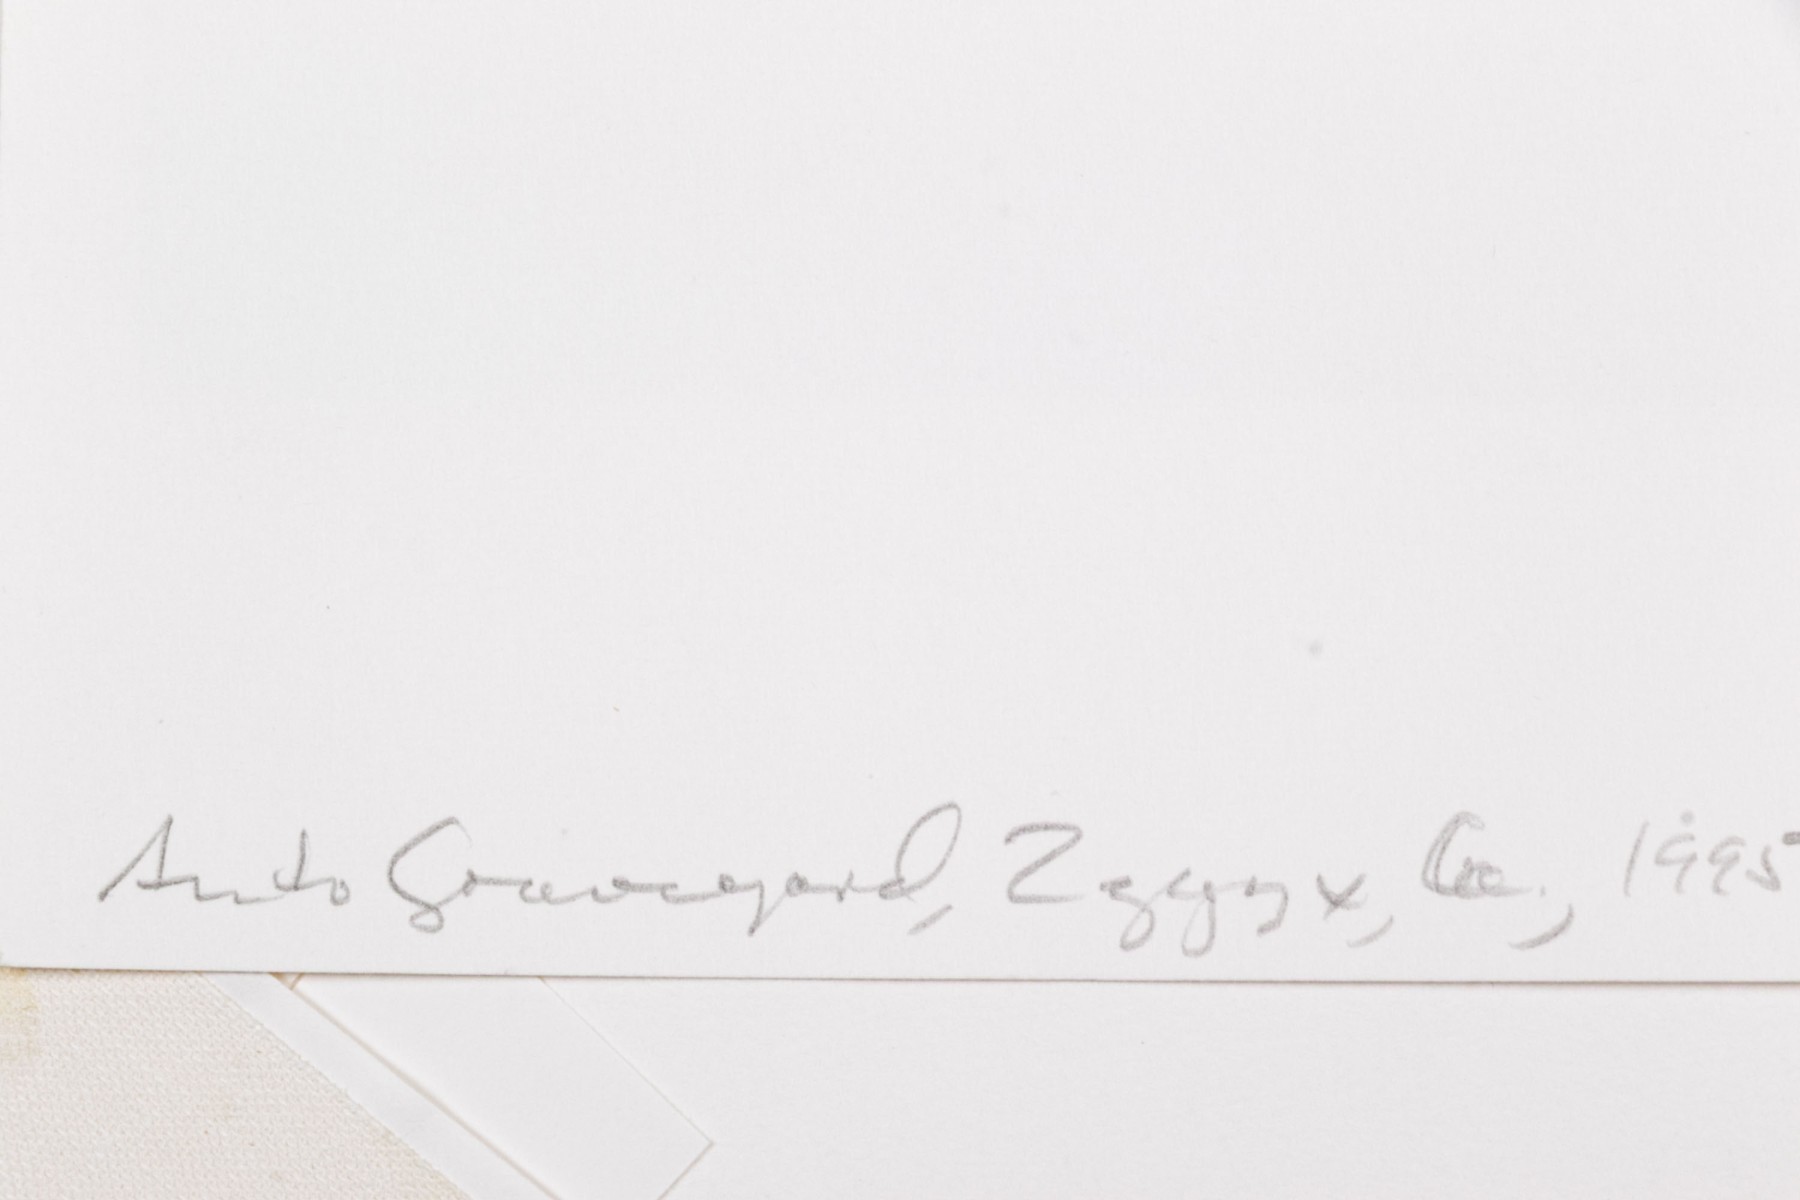 Auto Graveyard, Zzyzx, Ca., 1995